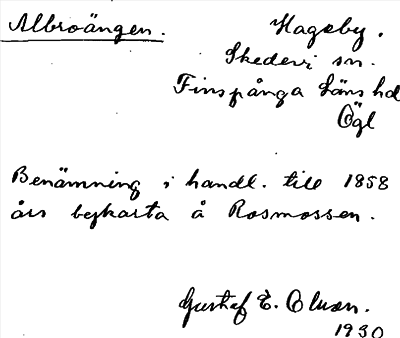 Albroängen. Hageby.
Skedevi sn.
Finspånga läns hd
Ögl
Benämning i handl. till 1858
års bykarta å Rosmossen.
Gustaf E. Olson.
1930